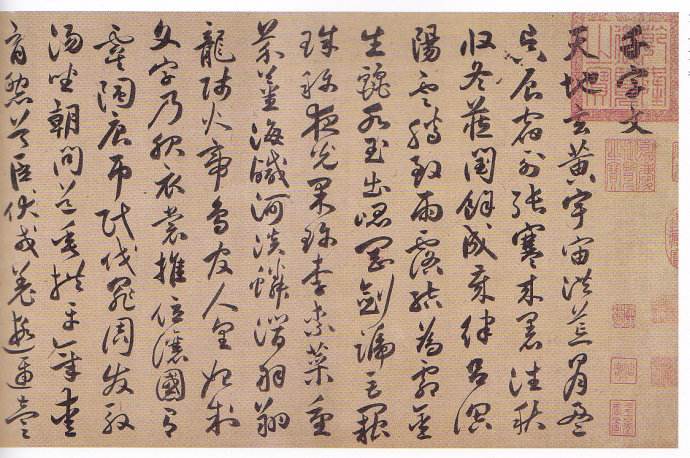 千字文
天地玄黃宇宙洪荒日月盈
昃辰宿列張寒來暑往秋
收冬藏閏餘成歲律呂調
陽雲騰致雨露結為霜金
生麗水玉出崑岡劍號巨闕
珠稱夜光果珍李柰菜重
芥薑海鹹河淡鱗潛羽翔
龍師火帝鳥官人皇始制
文字乃服衣裳推位讓國有
虞陶唐弔民伐罪周發殷
湯坐朝問道垂拱平章愛
育黎首臣伏戎羌遐邇壹